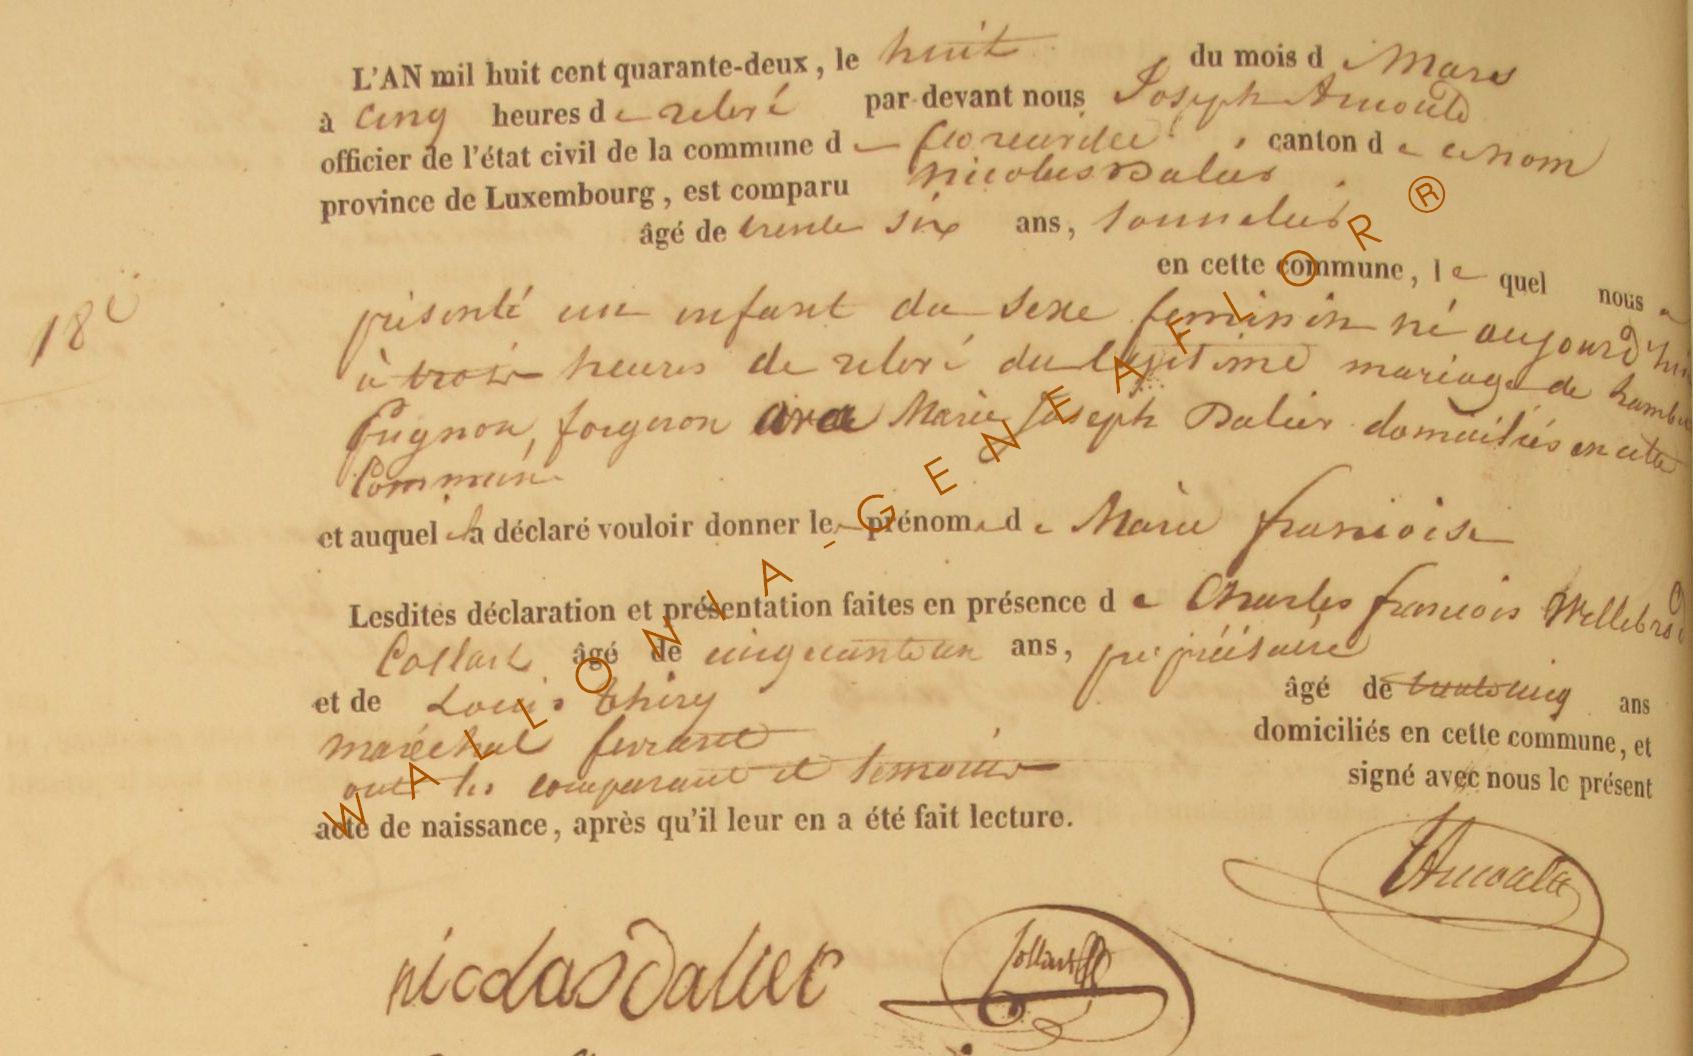 L'AN mil huit cent quarante-deux, le huit du mois d e Mars
à cinq heures d e relevé par-devant nous Joseph Arnould
officier de l'état civil de la commune d e Florenville, canton d e ce nom
province de Luxembourg, est comparu Nicolas Dalier
âgé de trente six ans, tonnelier
en cette commune, le quel nous a
18e
présenté un enfant du sexe feminin né aujourd'hui
à trois heures de relevé du légitime mariage de
Pugnon, forgeron avec Marie Joseph Dalier domiciliés en cette
Commune
et auquel il a déclaré vouloir donner le prénom d e Marie françoise
Lesdites déclaration et présentation faites en présence d e Charles françois Willebrod
Collart âgé de cinquante un ans, propriétaire
et de Louis Thiry âgé de trente cinq ans
maréchal ferrant domiciliés en cette commune, et
ont les comparant et temoins signé avec nous le présent
acte de naissance, après qu'il leur en a été fait lecture.
JArnould
nicolas Dalier
Collart
WALLONIA-GENEAFLOR®